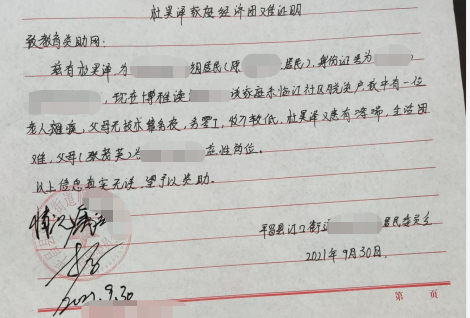 杜昊泽家庭经济困难证明
致教育资助网:
兹有杜昊泽,为 组居民(原 居民),身份证号为
,现在博雅读 该家庭系临江社区脱贫户,家中有一位
老人 ,父母无技术靠务农,务零工,收入较低,杜昊泽又患有哮喘,生活困
难,父母( )为 在性岗位。
以上信息真实无误,望予以资助。
平昌县江口街道 居民委员会
2021年9月30日.
情况属实
2021.9.30
第 页